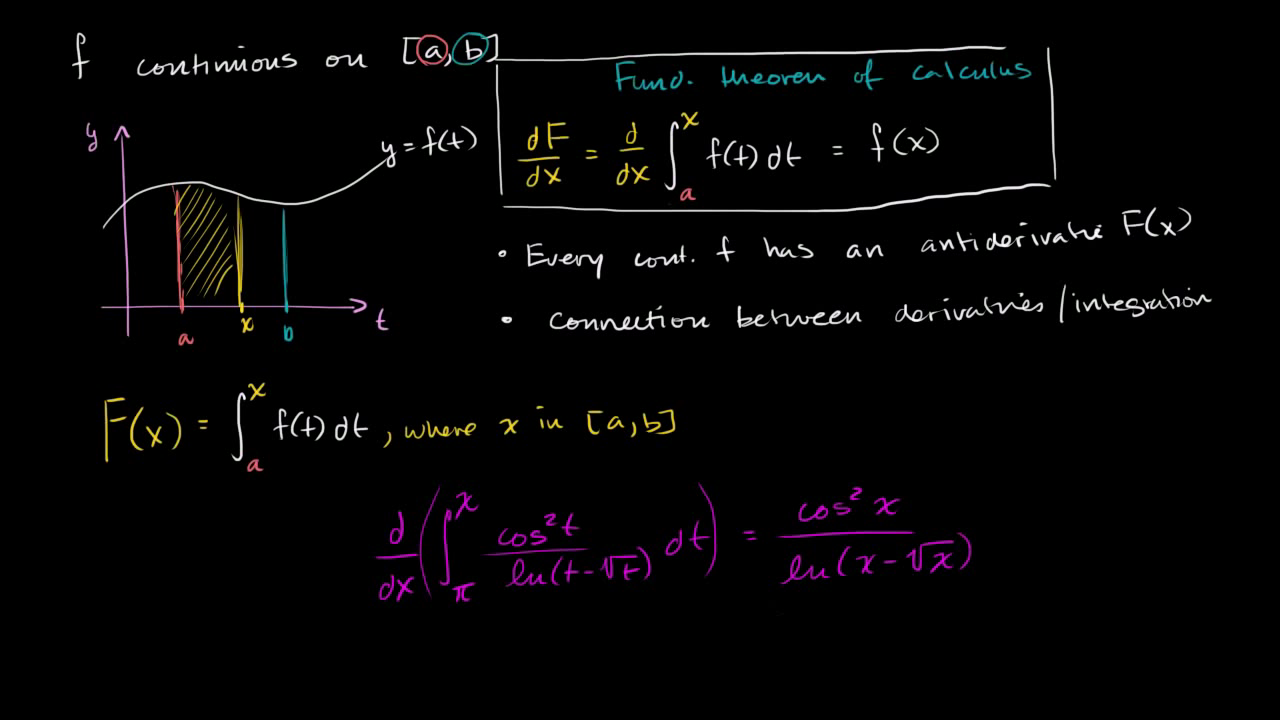 f continuous on [a, b]
Fund. theorem of calculus
dF/dx = d/dx ∫ₐˣ f(t) dt = f(x)
y
y = f(t)
a
x
b
t
• Every cont. f has an antiderivative F(x)
• connection between derivatives/integration
F(x) = ∫ₐˣ f(t) dt, where x in [a, b]
d/dx (∫_π^x cos²t / ln(t-√t) dt) = cos²x / ln(x-√x)